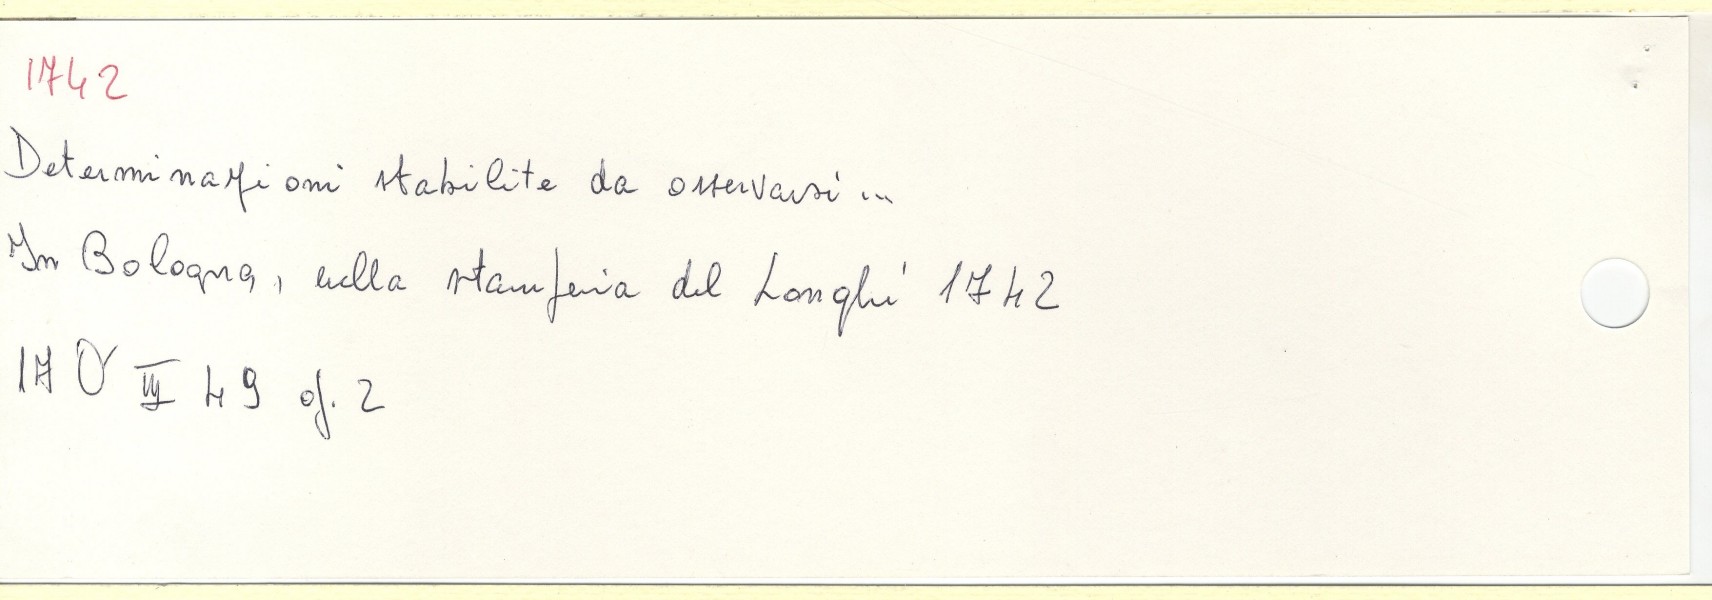 1742
Determinazioni stabilite da osservarsi...
In Bologna, nella stamperia del Longhi 1742
17 O III 49 op. 2